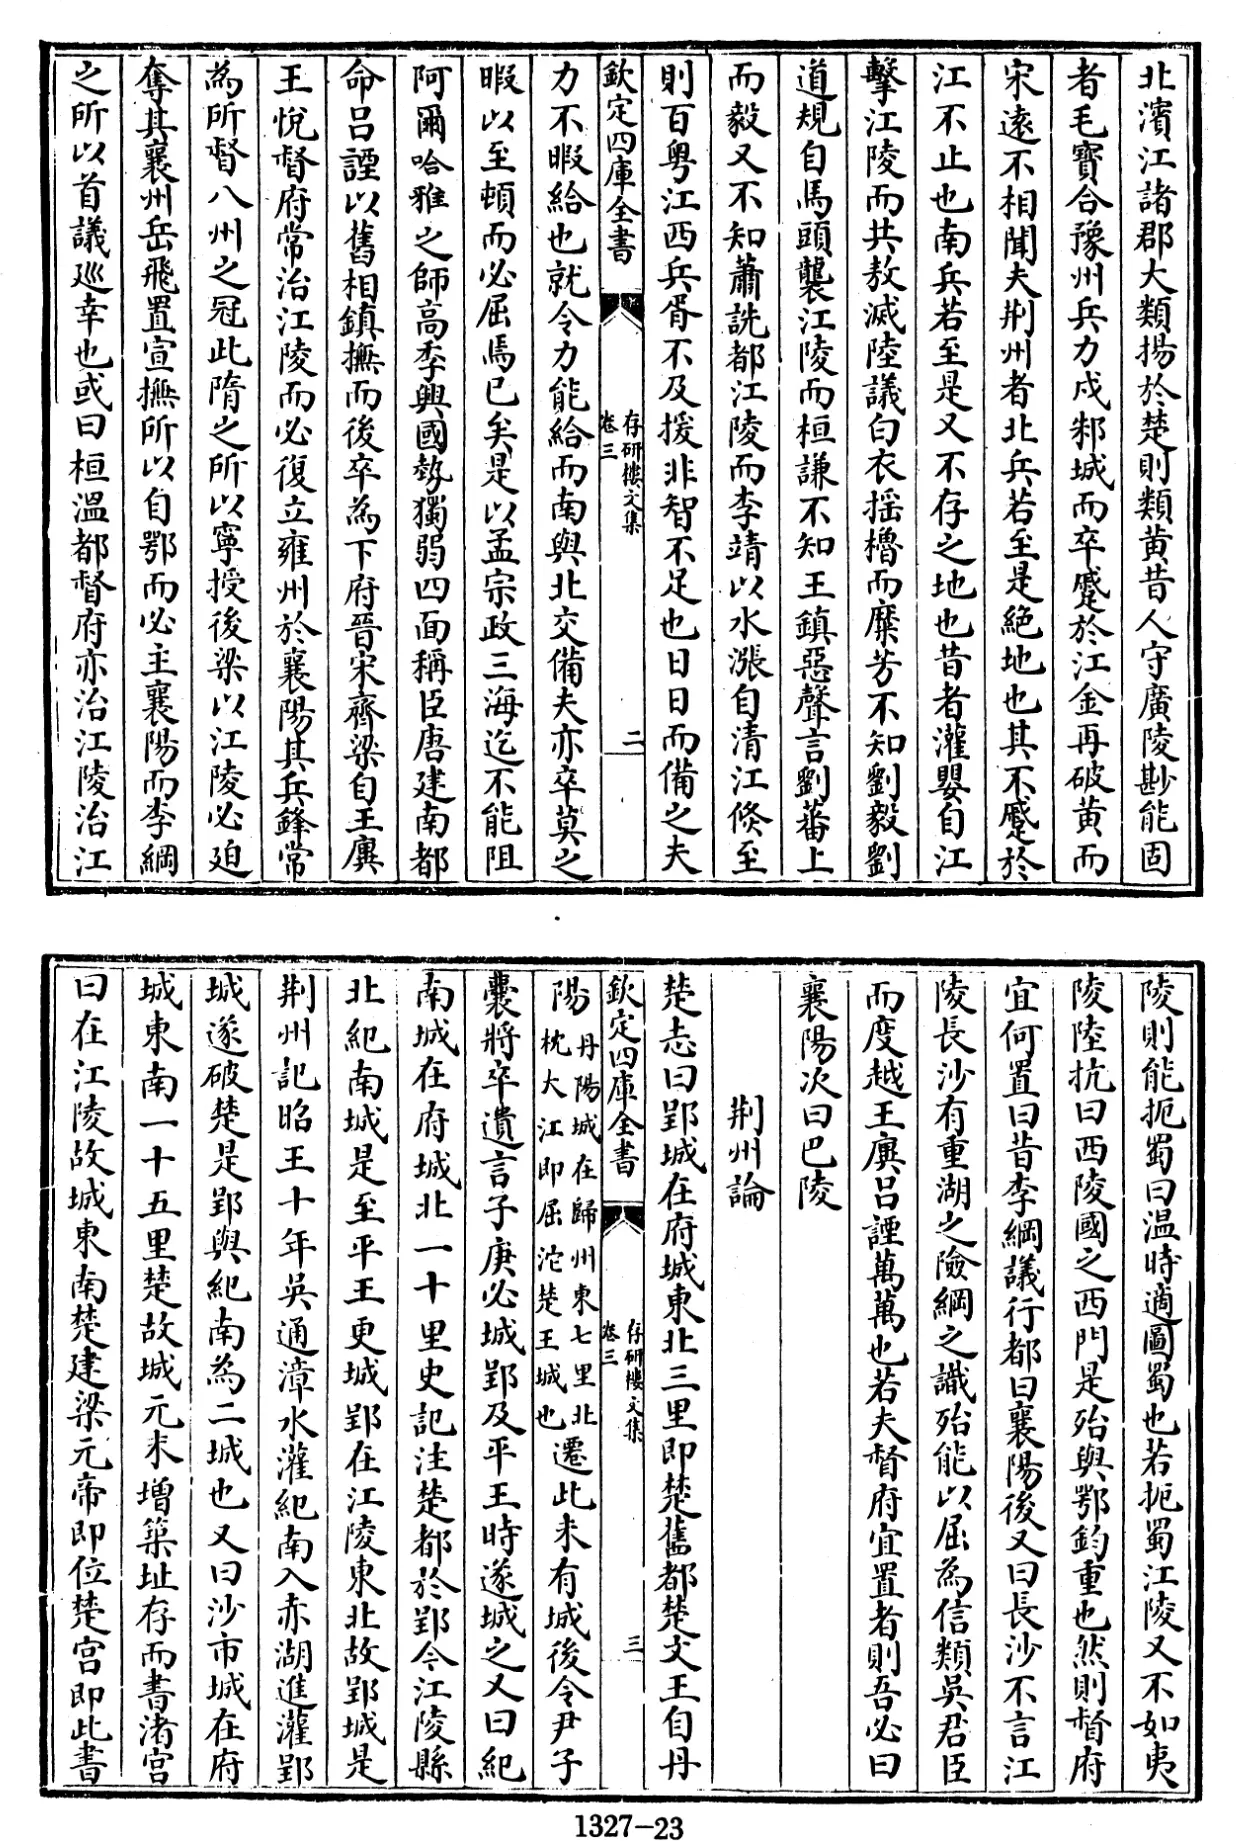 北濱江諸郡大類揚於楚則類黄昔人守廣陵尠能固
者毛寳合豫州兵力戍邾城而卒蹙於江金再破黄而
宋遠不相聞夫荆州者北兵若至是絶地也其不蹙於
江不止也南兵若至是又不存之地也昔者灌嬰自江
擊江陵而共敖滅陸議白衣揺櫓而麋芳不知劉毅劉
道規自馬頭襲江陵而桓謙不知王鎮惡聲言劉蕃上
而毅又不知蕭詵都江陵而李靖以水漲自清江倐至
則百粤江西兵胥不及援非智不足也日日而備之夫
欽定四庫全書
存研樓文集
卷三
二
力不暇給也就令力能給而南與北交備夫亦卒莫之
暇以至頓而必屈焉已矣是以孟宗政三海迄不能阻
阿爾哈雅之師高季興國勢獨弱四面稱臣唐建南都
命吕諲以舊相鎮撫而後卒為下府晉宋齊梁自王廙
王悅督府常治江陵而必復立雍州於襄陽其兵鋒常
為所督八州之冠此隋之所以寧授後梁以江陵必廹
奪其襄州岳飛置宣撫所以自鄂而必主襄陽而李綱
之所以首議廵幸也或曰桓溫都督府亦治江陵治江
陵則能扼蜀曰溫時適圖蜀也若扼蜀江陵又不如夷
陵陸抗曰西陵國之西門是殆與鄂鈞重也然則督府
宜何置曰昔李綱議行都曰襄陽後又曰長沙不言江
陵長沙有重湖之險綱之識殆能以屈為信類吳君臣
而度越王廙吕諲萬萬也若夫督府宜置者則吾必曰
襄陽次曰巴陵
荆州論
楚志曰郢城在府城東北三里即楚舊都楚文王自丹
欽定四庫全書
存研樓文集
卷三
三
陽丹陽城在歸州東七里北枕大江即屈沱楚王城也遷此未有城後令尹子
囊將卒遺言子庚必城郢及平王時遂城之又曰紀
南城在府城北一十里史記注楚都於郢今江陵縣
北紀南城是至平王更城郢在江陵東北故郢城是
荆州記昭王十年吳通漳水灌紀南入赤湖進灌郢
城遂破楚是郢與紀南為二城也又曰沙市城在府
城東南一十五里楚故城元末增築址存而書渚宫
曰在江陵故城東南楚建梁元帝即位楚宫即此書
1327-23